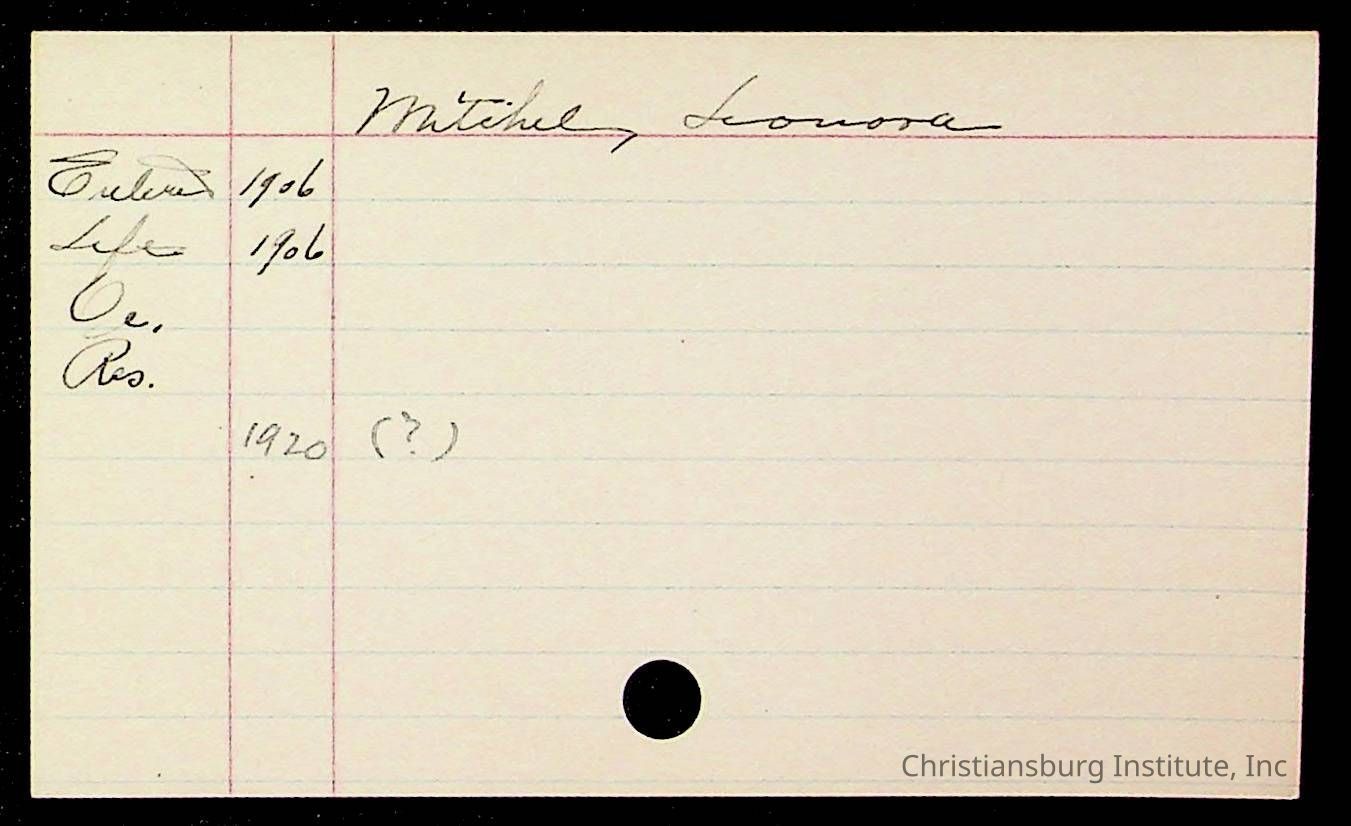 Mitchel, Leonora
Entered 1906
Left 1906
Oc.
Res.
1920 (?)
Christiansburg Institute, Inc